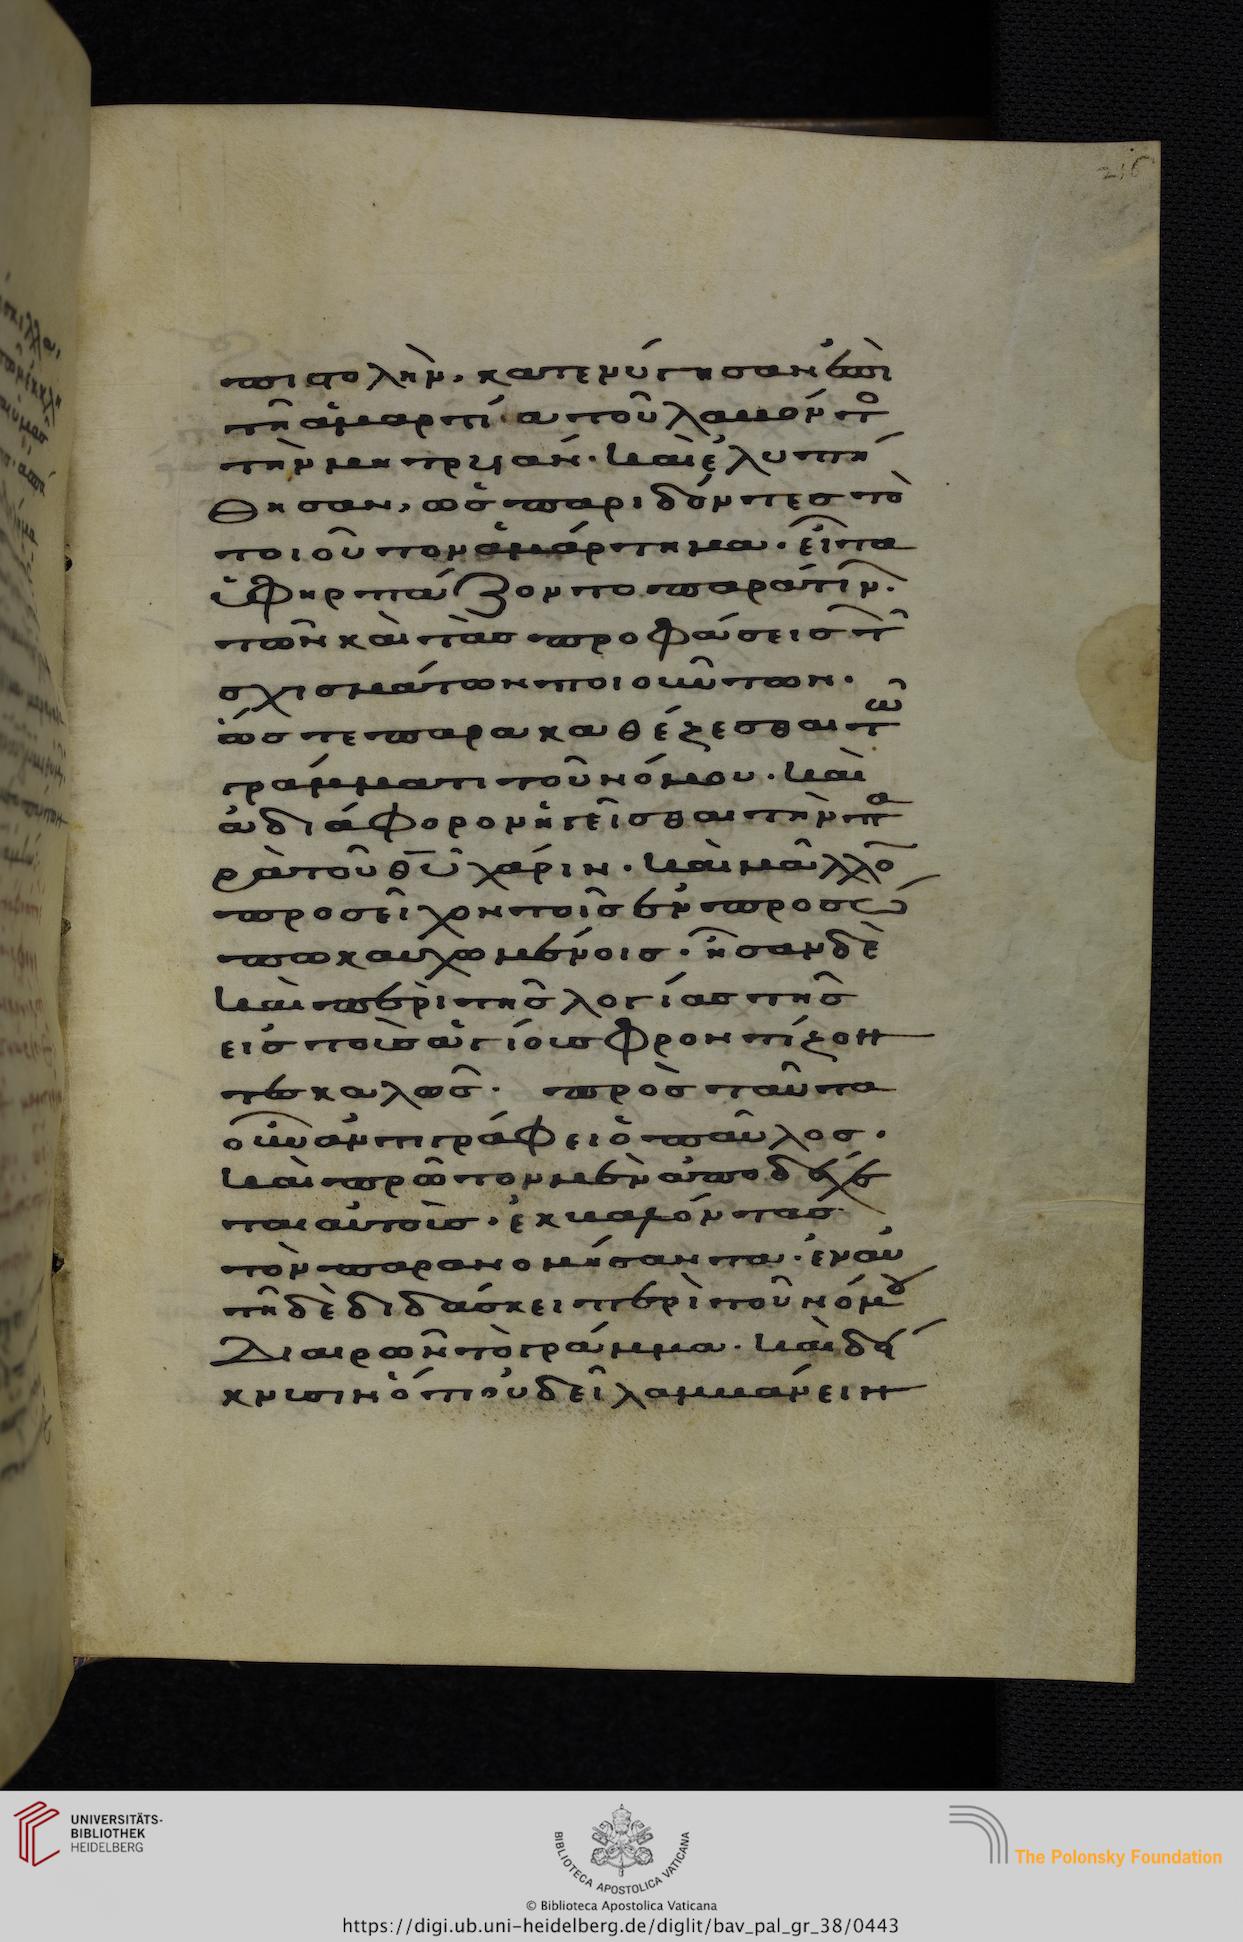 216
πιστολὴν, κατενύγησαν ἐπὶ
τῆ ἁμαρτία τοῦ λαβόντο
τὴν μητρυιάν. καὶ ἐλυπή
θησαν, ὡς παριδόντες τὸ
τοιοῦτον ἁμάρτημα. εἶτα
πρὸς ταῦτα
οὖν ἀντιγράφει ὁ παῦλος.
τῶν καὶ τὰς προφάσεις τῶν
σχισμάτων ποιούντων.
ὥστε παρακαθέζεσθαι τῶ
γράμματι τοῦ νόμου. καὶ
ἀδιάφορον ἡγεῖσθαι τὴν πα
ρὰ τοῦ θῦ χάριν. καὶ μᾶλλον
προσεῖχον τοῖς ἐν προσώ
πω καυχωμένοις. ἦσαν δὲ
καὶ περὶ τῆς λογίας τῆς
εἰς τοὺς ἁγίους φροντίζον
τες καλῶς. πρὸς ταῦτα
οὖν ἀντιγράφει ὁ παῦλος.
καὶ πρῶτον μὲν ἀποδέχε
ται αὐτοὺς. ἐκβαλόντας
τὸν παρανομήσαντα. ἐν αὐ
τῆ δὲ διδάσκει περὶ τοῦ νόμου
διαιρῶν τὸ γράμμα. καὶ δεί
κνυσιν ὅτι οὐ δεῖ λαμβάνειν
UNIVERSITÄTS-
BIBLIOTHEK
HEIDELBERG
BIBLIOTECA APOSTOLICA VATICANA
The Polonsky Foundation
© Biblioteca Apostolica Vaticana
https://digi.ub.uni-heidelberg.de/diglit/bav_pal_gr_38/0443